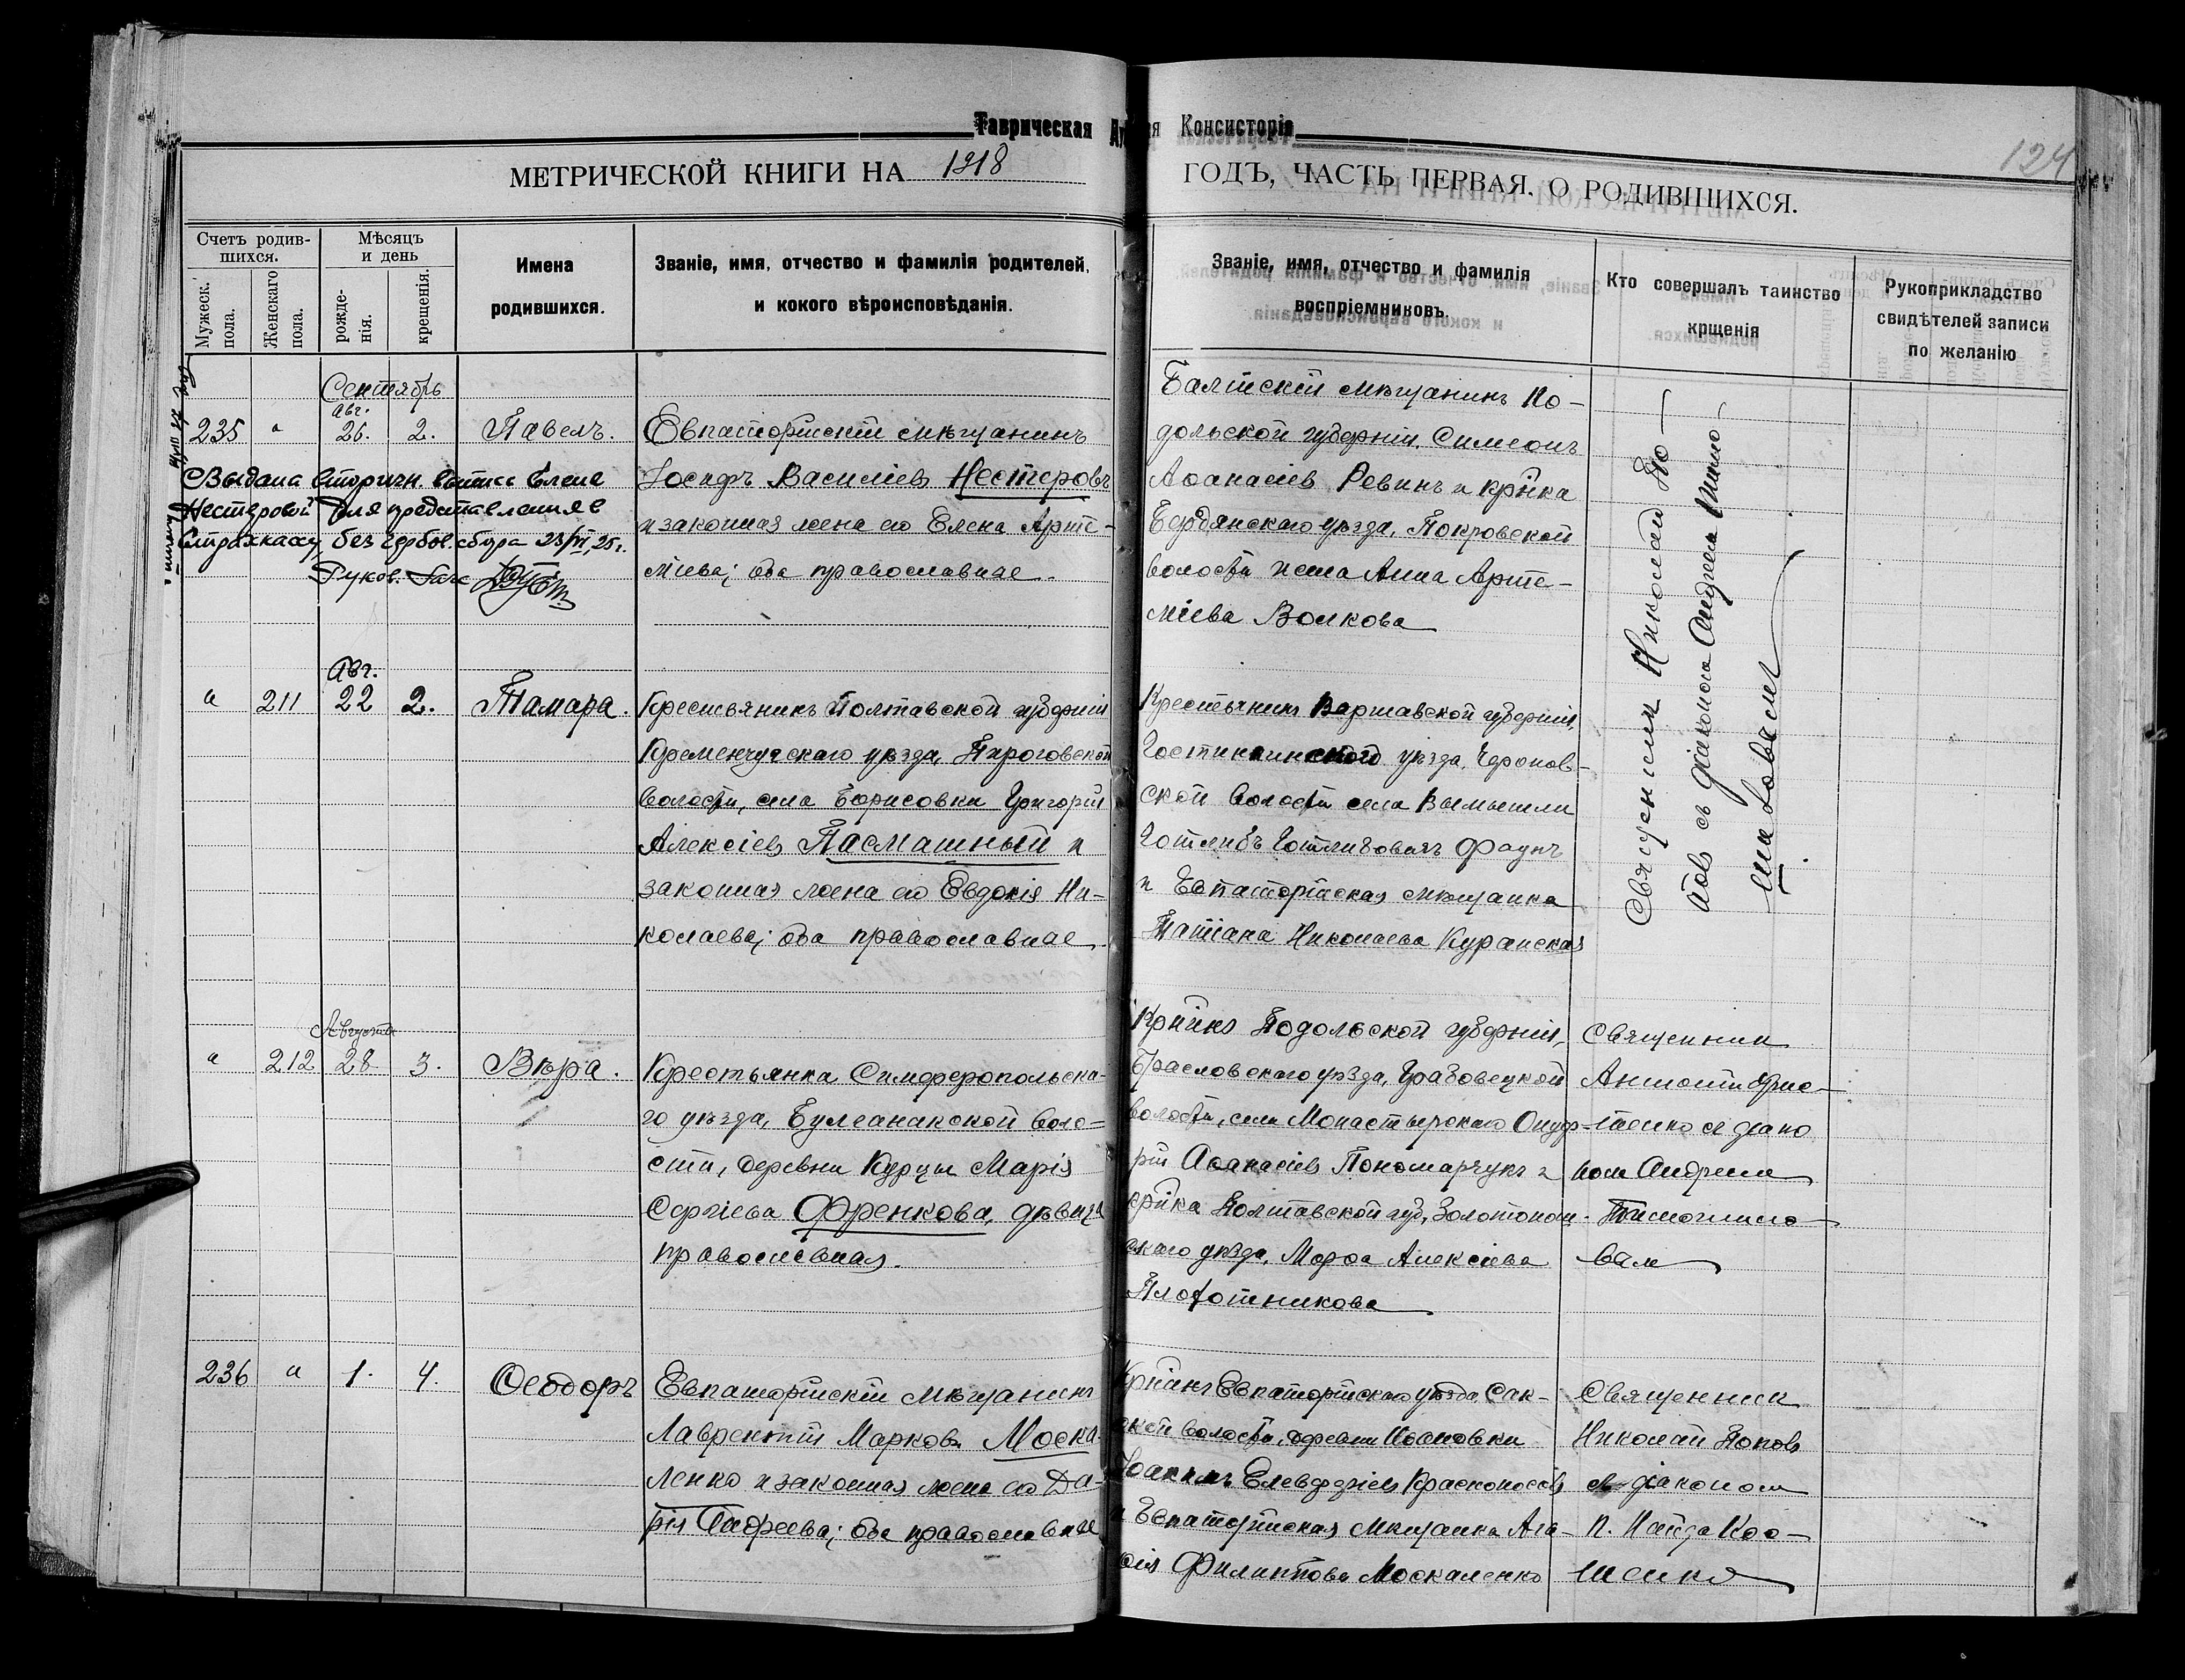 Таврическая Ду я Консисторія
124
МЕТРИЧЕСКОЙ КНИГИ НА 1918
ГОДЪ, ЧАСТЬ ПЕРВАЯ. О РОДИВШИХСЯ.
Счетъ родив-
шихся.
Мужеск. пола.
Женскаго пола.
Мѣсяцъ
и день
рожде-
нія.
крещенія.
Имена
родившихся.
Званіе, имя, отчество и фамилія родителей,
и кокого вѣроисповѣданія.
Званіе, имя, отчество и фамилія
воспріемниковъ.
Кто совершалъ таинство
крщенія
Рукоприкладство
свидѣтелей записи
по желанію
Сентябрь
Авг.
235 " 26. 2. Павелъ.
Евпаторійскій мѣщанинъ
Іосифъ Василіевъ Нестеровъ
и законная жена его Елена Арте-
міева; оба православные.
Выдана вторичн. выпись Елене
Нестеровой для представления в
Страхкассу без гербов. сбора 23/VI, 25г.
Руков.
Балтскій мѣщанинъ По-
дольской губерніи Симеонъ
Аѳанасіевъ Ревинъ и кр҃нка
Бердянскаго уѣзда, Покровской
волости Анна Арте-
міева Волкова
Священник Николай По-
повъ съ діакономъ Андреем Письмо-
шиловымъ
Авг.
" 211 22 2. Тамара.
Крестьянинъ Полтавской губерніи
Кременчугскаго уѣзда, Пироговской
волости, села Борисовки Григорій
Алексіевъ Пасмашный и
законная жена его Евдокія Ни-
колаева; оба православные.
Крестьянинъ Варшавской губерніи,
уѣзда,
ской волости села Вымысли
Готлибъ Готлибовичъ Фаунъ
и Евпаторійская мѣщанка
Татіана Николаева Куранская
Августа
" 212 28 3. Вѣра.
Крестьянка Симферопольска-
го уѣзда, Булганакской воло-
сти, деревни Курцы Марія
Сергіева Френкова, дѣвица
православная.
Кр҃нинъ Подольской губерніи,
Брасловскаго уѣзда, Грабовецкой
волости, села Монастырскаго Онуф-
рій Аѳанасіевъ Пономарчукъ и
кр҃нка Полтавской губ., Золотонош-
скаго уѣзда, Марѳа Алексіева
Плототникова
Священник
съ діако-
ном Андреем
Письмошило-
вым
236 " 1. 4. Ѳеодоръ
Евпаторійскій мѣщанинъ
Лаврентій Марковъ Моска-
ленко и законная жена его Да-
рія Андреева; оба православные
Кр҃нинъ Евпаторійскаго уѣзда, Сак-
ской волости, деревни Ивановки
Іоакимъ Елевферіевъ Красноносовъ
и Евпаторійская мѣщанка Ага-
ѳія Филиппова Москаленко
Священник
Николай Поповъ
съ діаконом
П. Найда Коо-
шенко